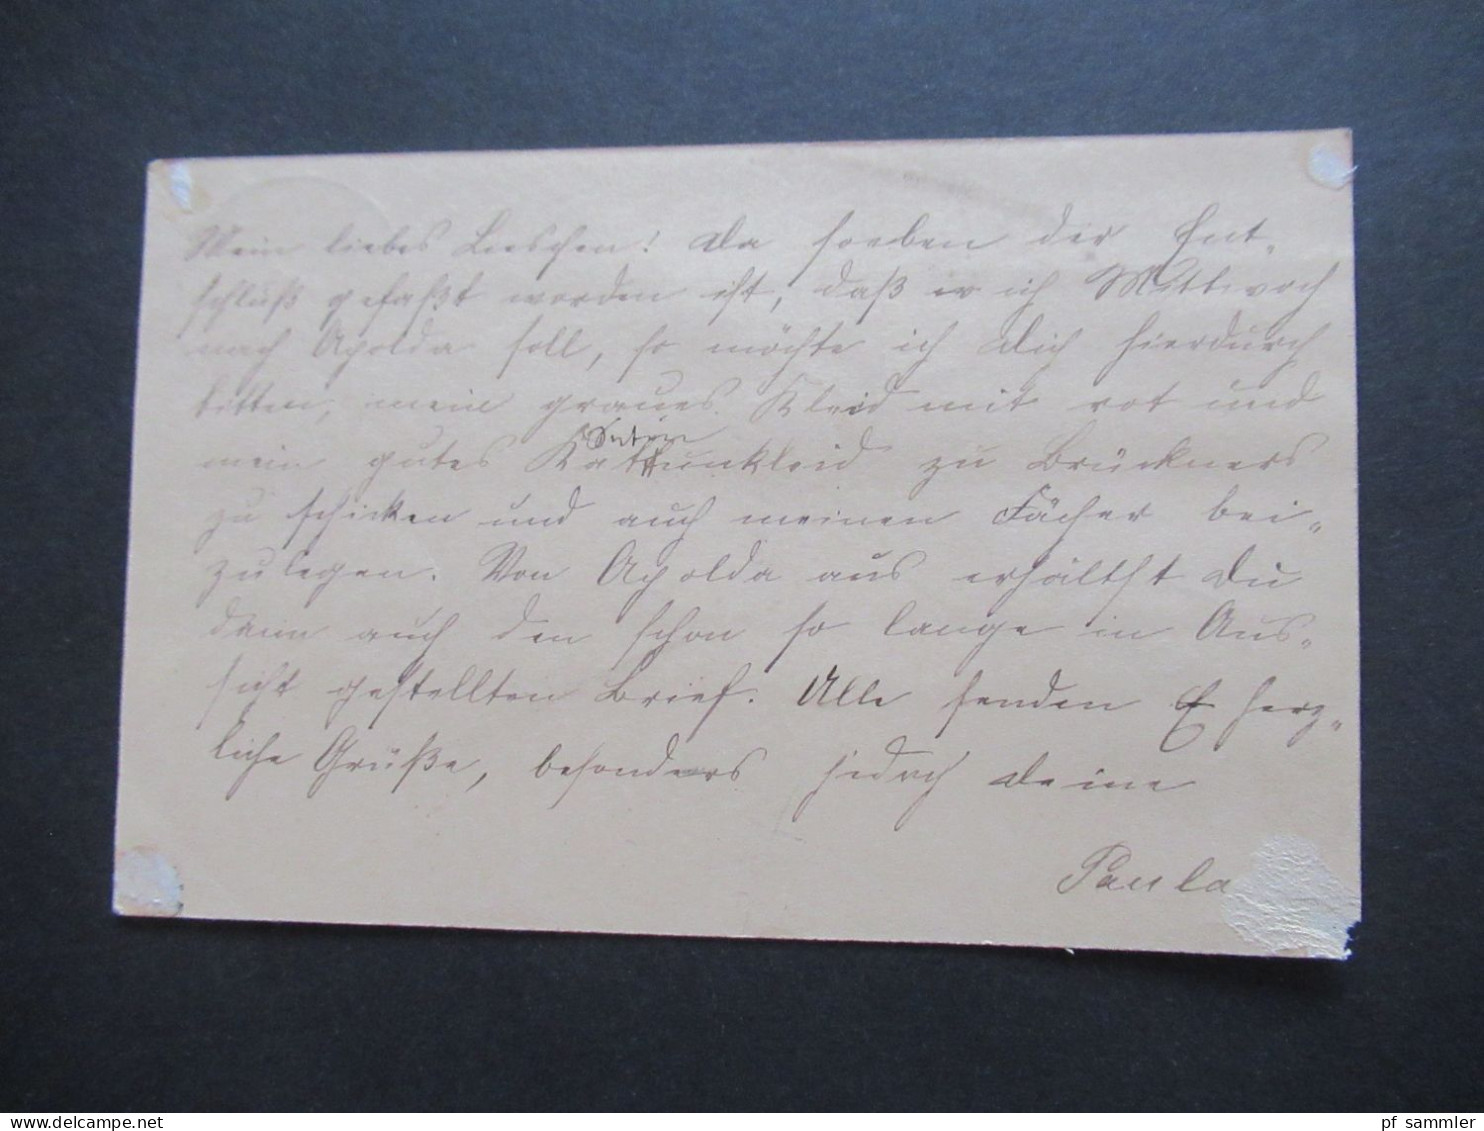 Mein liebes Lieschen! Da soeben der Ent-
schluß gefaßt worden ist, daß ich Mittwoch
nach Apolda soll, so möchte ich Dich hierdurch
bitten, mein graues Kleid mit rot und
mein gutes Kattunkleid zu Brückners
zu schicken und auch meinen Fächer bei-
zulegen. Von Apolda aus erhältst Du
dann auch den schon so lange in Aus-
sicht gestellten Brief. Alle senden herz-
liche Grüße, besonders jedoch Deine
Paula
pf sammler